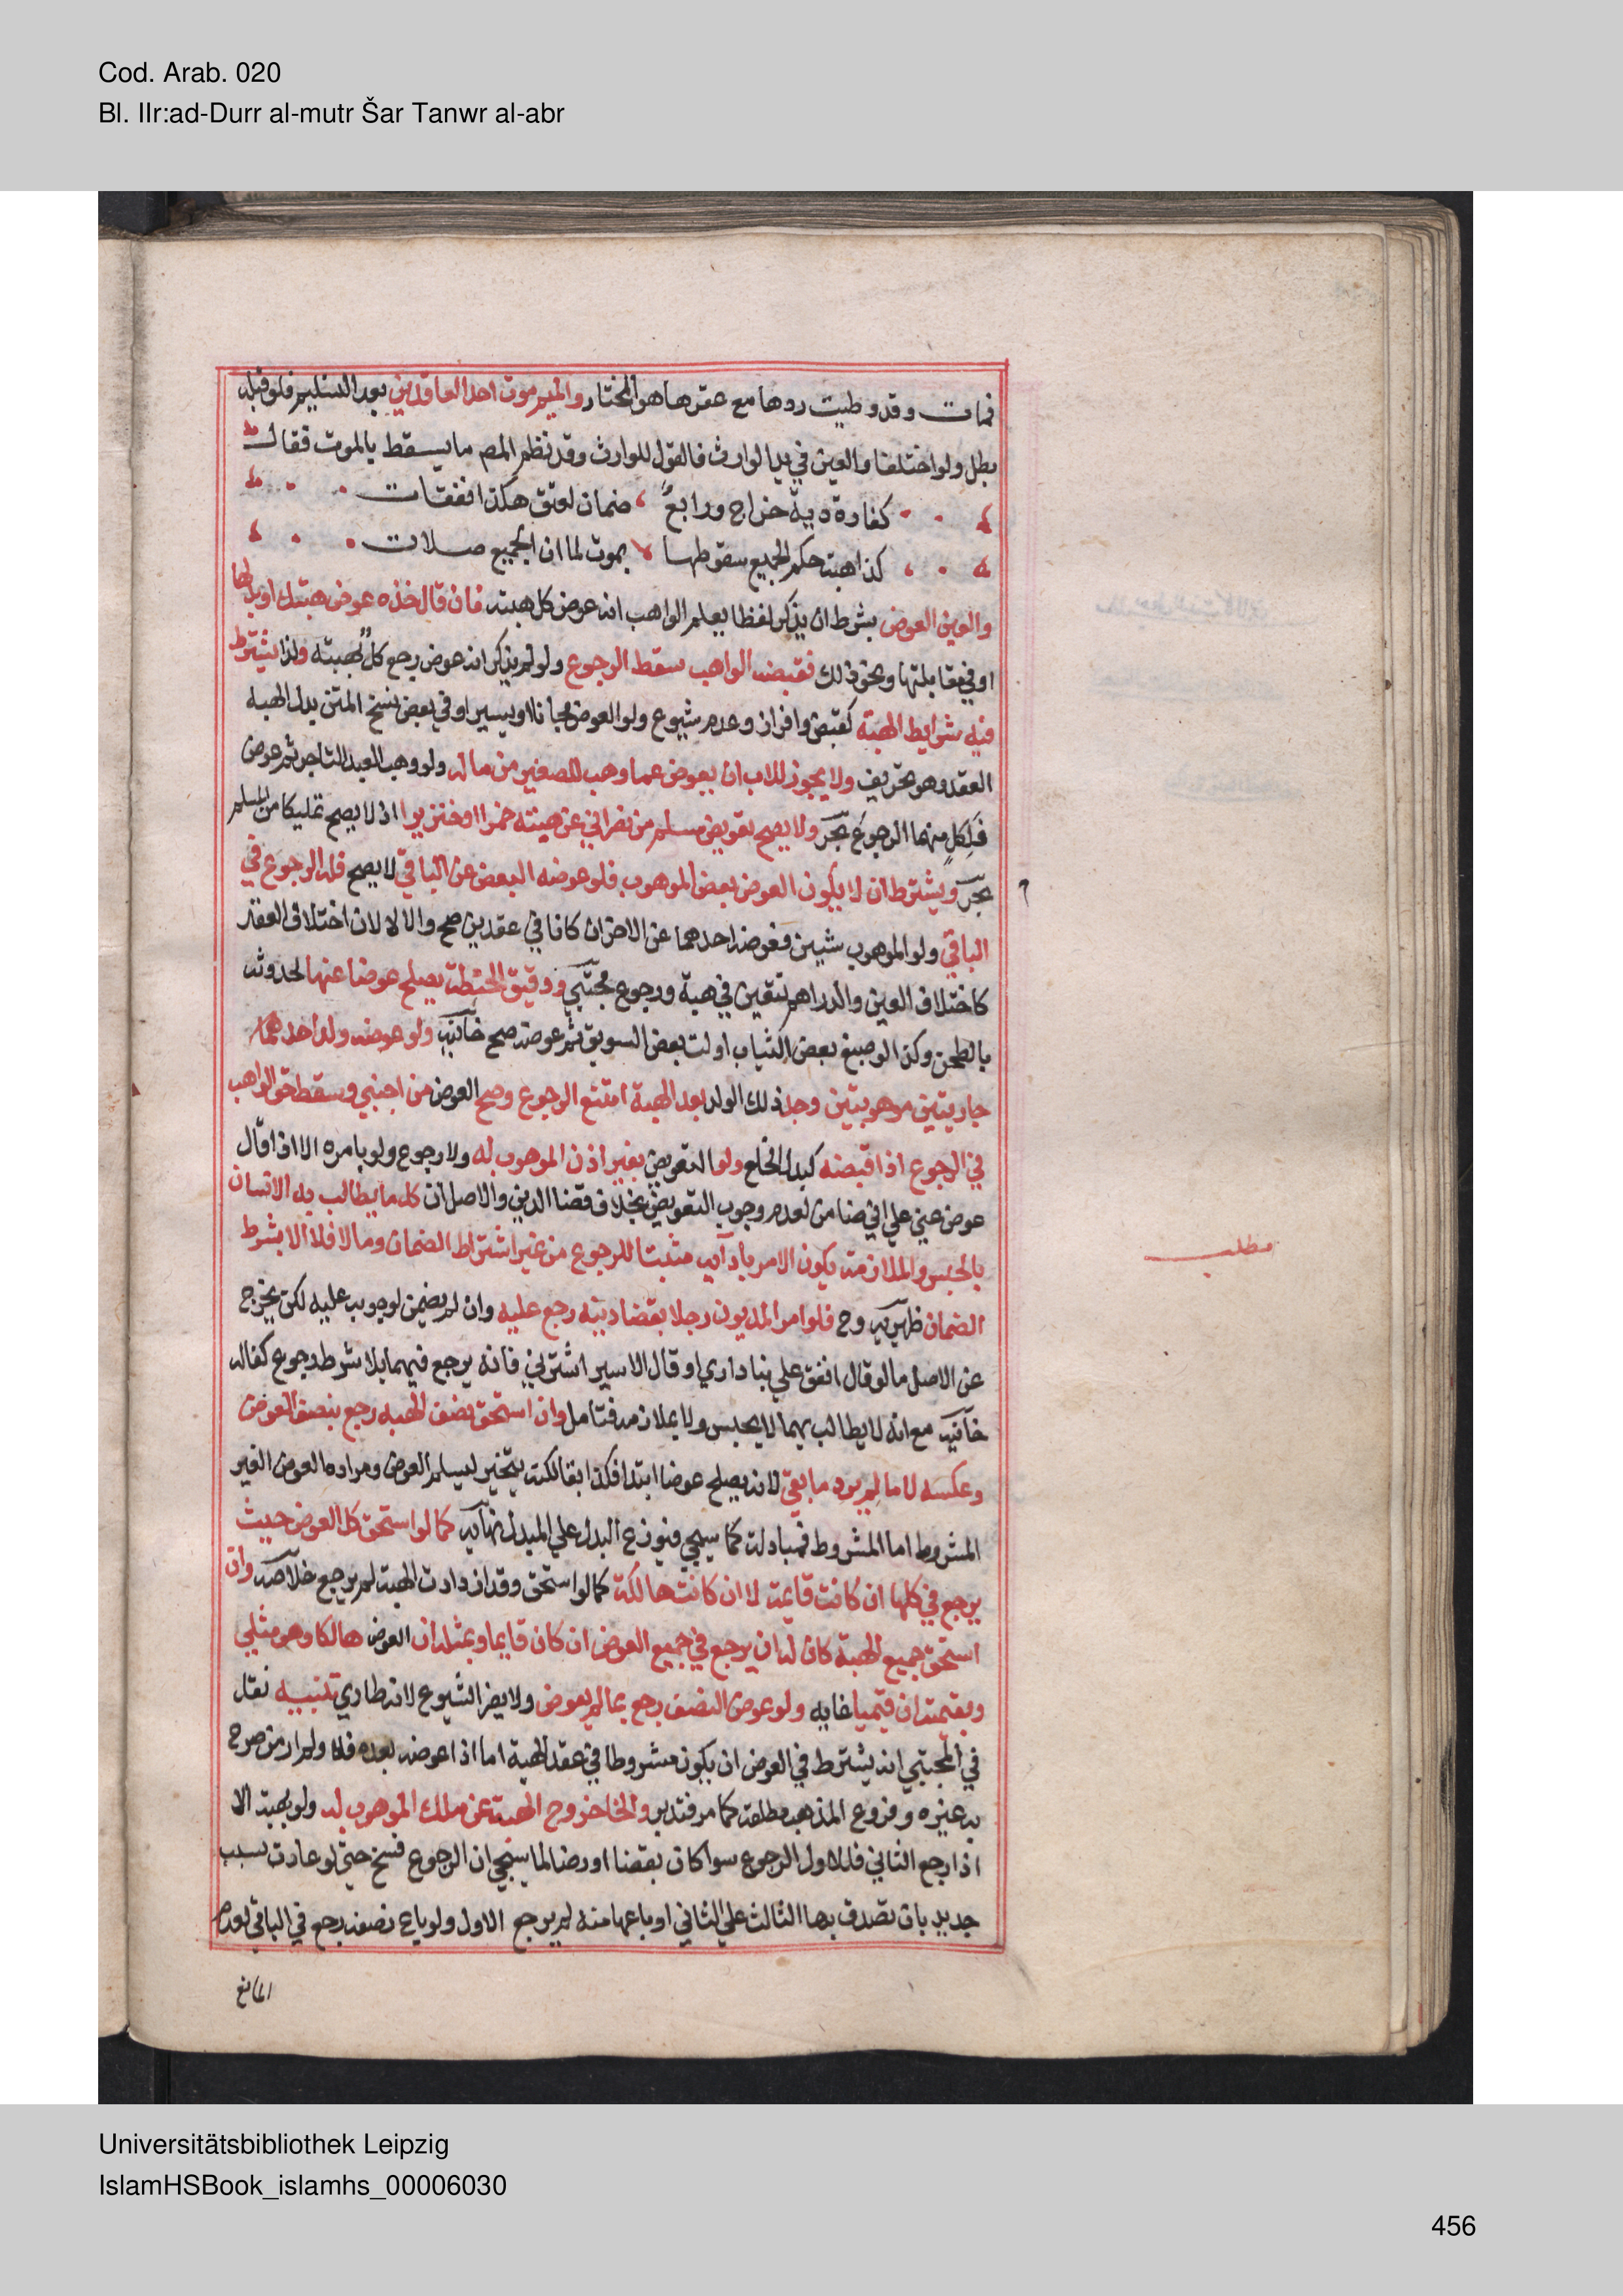 Cod. Arab. 020
Bl. IIr:ad-Durr al-mutr Šar Tanwr al-abr
فمات وقد وطيت ردها مع عقرها هو المختار والميم موت احد العاقدين بعد التسليم فلو قبله
بطل ولو اختلفا والعين في يد الوارث فالقول للوارث وقد نظم المص ما يسقط بالموت فقال
كفارة دية خراج ورابعٌ ضمان لعتق هكذا نفقات
كذا هبة حكم الجميع سقوطها بموت لما ان الجميع صلات
والعين العوض بشرط ان يذكر لفظا يعلم الواهب انه عوض كل هبته فان قال خذه عوض هبتك او بدلها
او في مقابلتها ونحو ذلك فقبضه الواهب سقط الرجوع ولو لم يذكر انه عوض رجع كلٌ بهبته ولذا يشترط
فيه شرايط الهبة كقبض وافراز وعدم شيوع ولو العوض مجانسا او يسيرا وفي بعض نسخ المتن بدل الهبه
العقد وهو تحريف ولا يجوز للاب ان يعوض عما وهب للصغير من ماله ولو وهب العبد التاجر ثم عوض
فلكلٍ منهما الرجوع بحر ولا يصح تعويض مسلم من نصراني عن هبته خمرا او خنزيرا اذ لا يصح تمليكا من المسلم
بحر ويشترط ان لا يكون العوض بعض الموهوب فلو عوضه البعض عن الباقي لا يصح فله الرجوع في
الباقي ولو الموهوب شيين فعوضه احدهما عن الاخر ان كانا في عقدين صح والا لا لان اختلاف العقد
كاختلاف العين والدراهم تتعين في هبة ورجوع مجتبي ودقيق الحنطة يصلح عوضا عنها لحدوثه
بالطحن وكذا لو صبغ بعض الثياب او لت بعض السويق ثم عوضه صح خانيه ولو عوضه ولد احد هما
جاريتين موهوبتين وجد ذلك الولد بعد الهبة امتنع الرجوع وصح العوض من اجنبي وسقط حق الواهب
في الرجوع اذا قبضه كبدل الخلع ولو التعويض بغير اذن الموهوب له ولا رجوع ولو بامره الا اذا قال
عوض عني علي اني ضامن لعدم وجوب التعويض بخلاف قضا الدين والاصل ان كل ما يطالب به الانسان
بالحبس والملازمة يكون الامر بادآيه مثبتا للرجوع من غير اشتراط الضمان وما لا فلا الا بشرط
الضمان ظهيريه وح فلو امر المديون رجلا بقضا دينه رجع عليه وان لم يضمن لوجوبه عليه لكن يخرج
عن الاصل ما لو قال انفق علي بنا داري او قال الاسير اشترني فانه يرجع فيهما بلا شرط رجوع كفاله
خانيه مع انه لا يطالب بهما لا بحبس ولا بملازمه فتامل وان استحق نصف الهبه رجع بنصف العوض
وعكسه لا ما لم يرد ما بقي لانه يصلح عوضا ابتدا فكذا بقا لكنه يتخير ليسلم العوض ومراده العوض الغير
المشروط اما المشروط فمبادلة كما سيجي فيوزع البدل علي المبدل نهايه كما لو استحق كل العوض حيث
يرجع في كلها ان كانت قايمة لا ان كانت هالكة كما لو استحق وقد ازدادت الهبة لم يرجع خلاصه وان
استحق جميع الهبة كان له ان يرجع في جميع العوض ان كان قايما وبمثله ان العوض هالكا وهو مثلي
وبقيمته ان قيميا غايه ولو عوض النصف رجع بما لم يعوض ولا يضر الشيوع لانه طاري تنبيه نقل
في المجتبي انه يشترط في العوض ان يكون مشروطا في عقد الهبة اما اذا عوضه بعده فلا ولم ار من صرح
به غيره وفروع المذهب مطلقه كما مر فتدبر والخا خروج الهبة عن ملك الموهوب له ولو بهبة الا
اذا رجع الثاني فللاول الرجوع سوا كان بقضا او رضا لما سيجي ان الرجوع فسخ حتي لو عادت بسبب
جديد بان تصدق بها الثالث علي الثاني او باعها منه لم يرجع الاول ولو باع نصفه رجع في الباقي لعدم
المانع
مطلب
Universitätsbibliothek Leipzig
IslamHSBook_islamhs_00006030
456